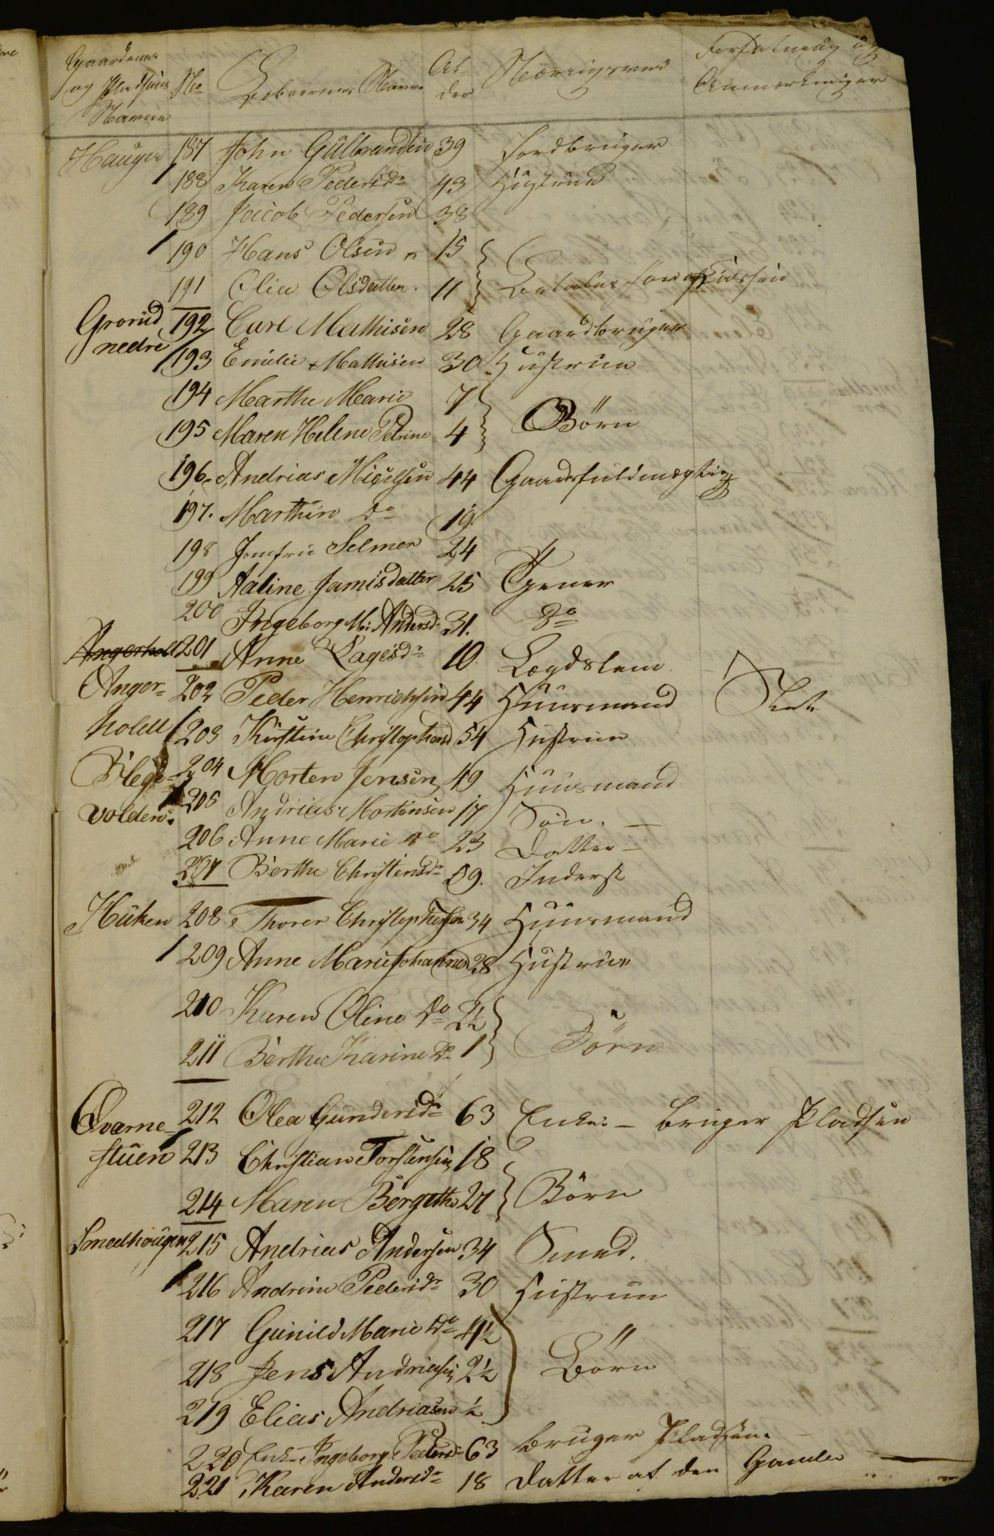 Gaardenes og Pladsenes Navne No Beboernes Navne Alder Næringsvei Forfatning og Anmærkninger
Hauger 187 John Gulbrandsen 39 Jordbruger
188 Karen Pedersdr 43 Hustrue
189 Jacob Pedersen 38
190 Hans Olsen 15
191 Elia Olsdatter 11 Betales for af
Grorud nedre 192 Carl Mathisen 28 Gaardbruger
193 Emilie Mathisen 30 Hustrue
194 Marthe Marie 7
195 Maren Helene Petrine 4 Börn
196 Andrias Nielsen 44 Gaardsfuldmægtig
197. Marthin Do 19
198 Jomfrue Selmer 24
199 Aaline Jamisdatter 25 Tjener
200 Ingeborg M: Andersd: 31. Do
Angerholt 201 Anne Lagesd: 10 Lægdslem
Angerholdt 202 Peder Henrichsen 44 Huusmand
203 Kirstine Christophersd 54 Hustrue
Blegevolden. 204 Morten Jensen 49 Huusmand
205 Andrias Mortensen 17 Søn. —
206 Anne Marie do 23 Datter —
207 Berthe Christensdr 59. Inderst
Huken 208 Thorer Christophersen 34 Huusmand
209 Anne Marie Johannesd 28 Hustrue
210 Karen Oline Do 2½
211 Berthe Karine Do 1 Börn
Qvarnestuen 212 Olea Gundersdr 63 Enke: — bruger Pladsen
213 Christian Torstensen 18
214 Maren Bergethe 27 Börn
Smedhougen 215 Andrias Andersen 34 Smed.
216 Andrine Pedersdr 30 Hustrue
217 Gunild Marie Do 4½
218 Jens Andriesen 2½ Börn
219 Elias Andriasen ½
220 Enke Ingeborg Pedersd: 63 bruger Pladsen.
221 Karen Andersdr 18 Datter af den Gamle —